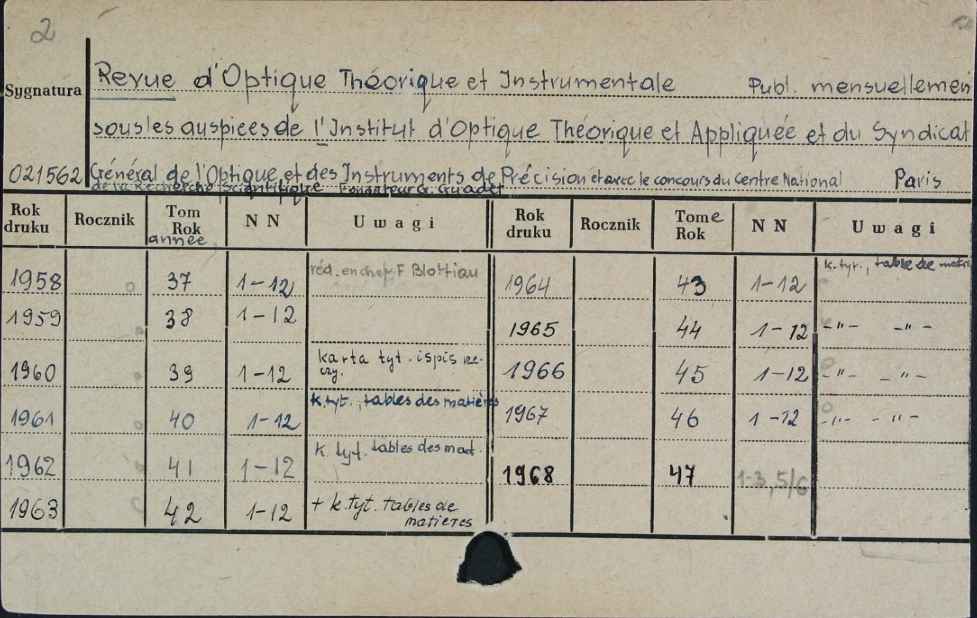 2
Sygnatura
Revue d'Optique Théorique et Instrumentale Publ. mensuellemen
sous les auspices de l'Institut d'Optique Théorique et Appliquée et du Syndicat
021562 Général de l'Optique et des Instruments de Précision et avec le concours du Centre National Paris
de la Recherche Scientifique Fondateur G. Guadet
Rok druku Rocznik Tom Rok année NN Uwagi Rok druku Rocznik Tome Rok NN Uwagi
1958 37 1-12 réd. en chef F Blottiau 1964 43 1-12 k.tyt., table de matie
1959 38 1-12 1965 44 1-12 -"- -"-
1960 39 1-12 karta tyt. i spis rze-
czy. 1966 45 1-12 -"- -"-
1961 40 1-12 k.tyt., tables des matières 1967 46 1-12 -"- -"-
1962 41 1-12 k. tyt. tables des mat. 1968 47 1-3, 5/6
1963 42 1-12 + k.tyt. tables de
matieres